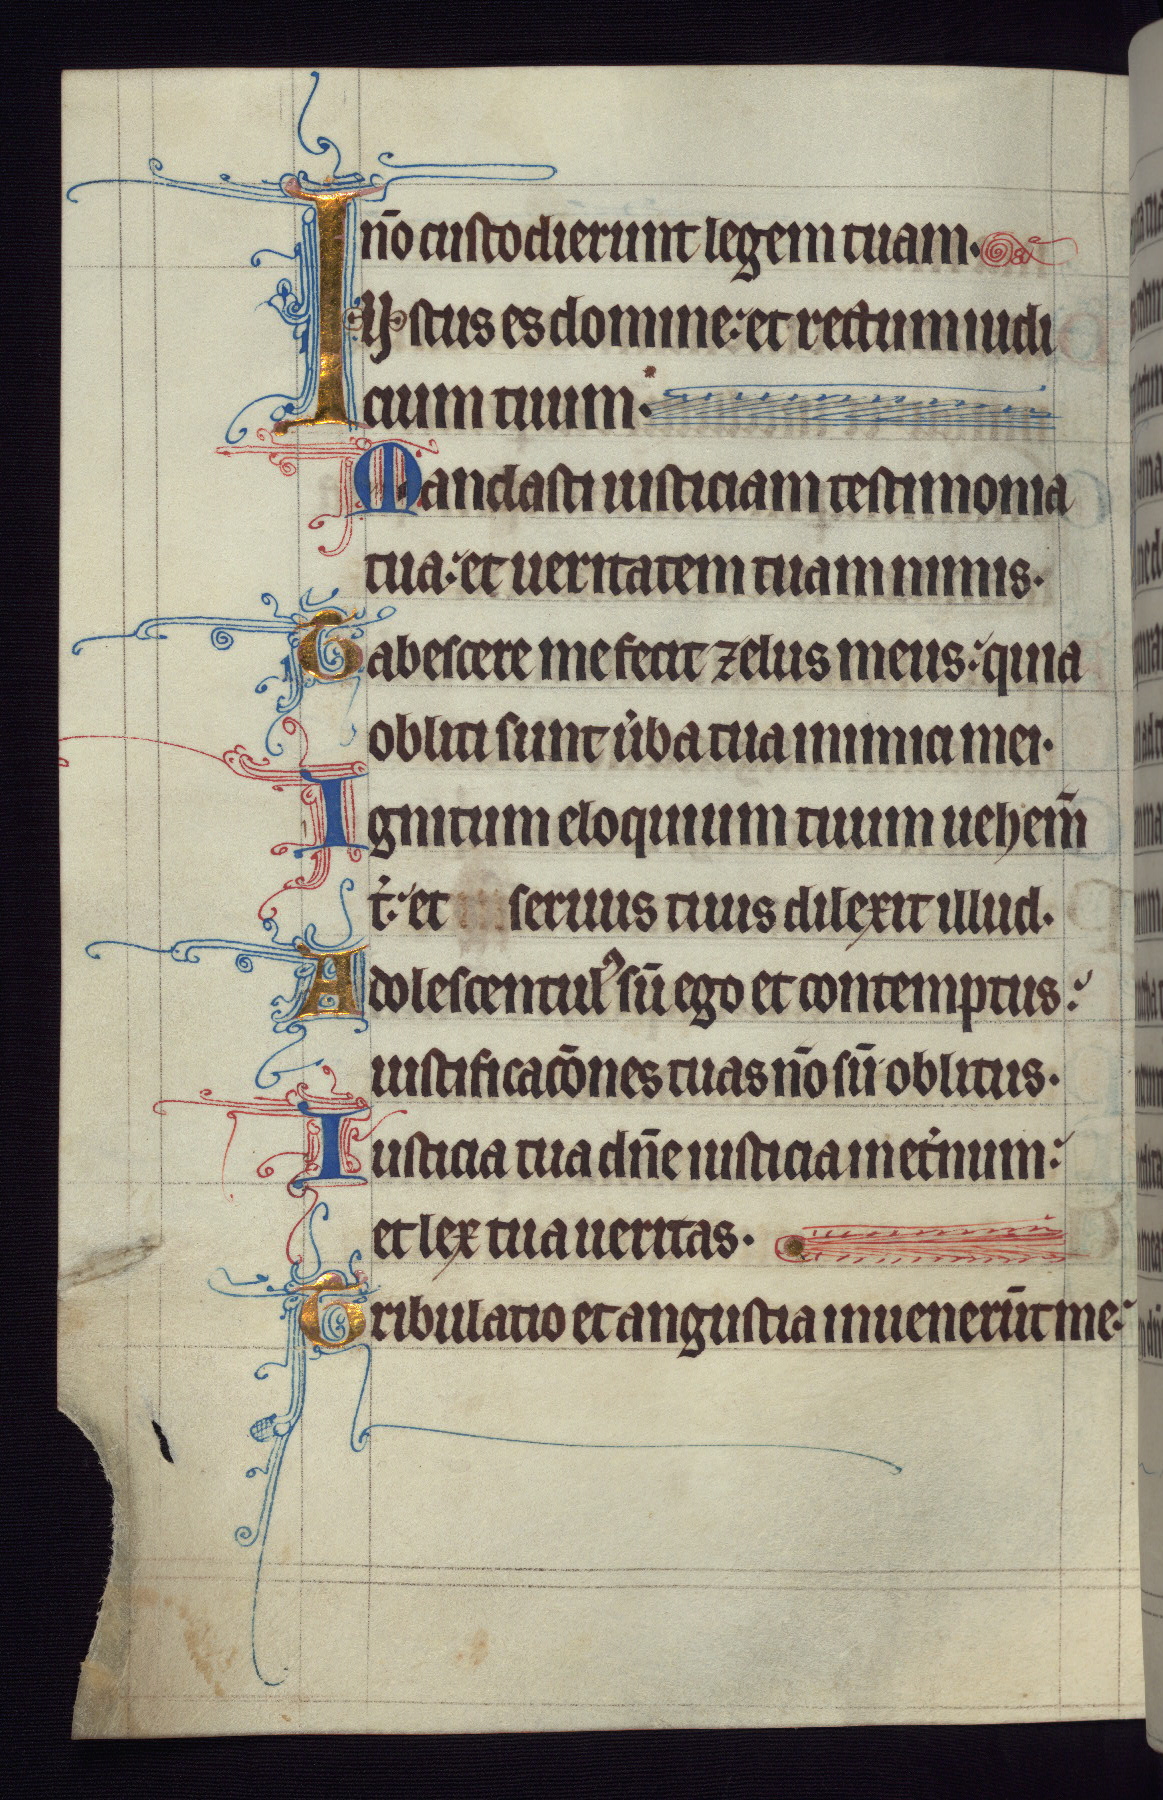 nō custodierunt legem tuam.
Iustus es domine: et rectum iudi
cium tuum.
Mandasti iusticiam testimonia
tua: et ueritatem tuam nimis.
Tabescere me fecit zelus meus: quia
obliti sunt u̓ba tua inimici mei.
Ignitum eloquium tuum uehem̄
t̓: et seruus tuus dilexit illud.
Adolescentulꝰ sū ego et contemptus:
iustificacōnes tuas nō sū oblitus.
Iusticia tua dn̄e iusticia in et̓num:
et lex tua ueritas.
Tribulatio et angustia inuenerūt me: